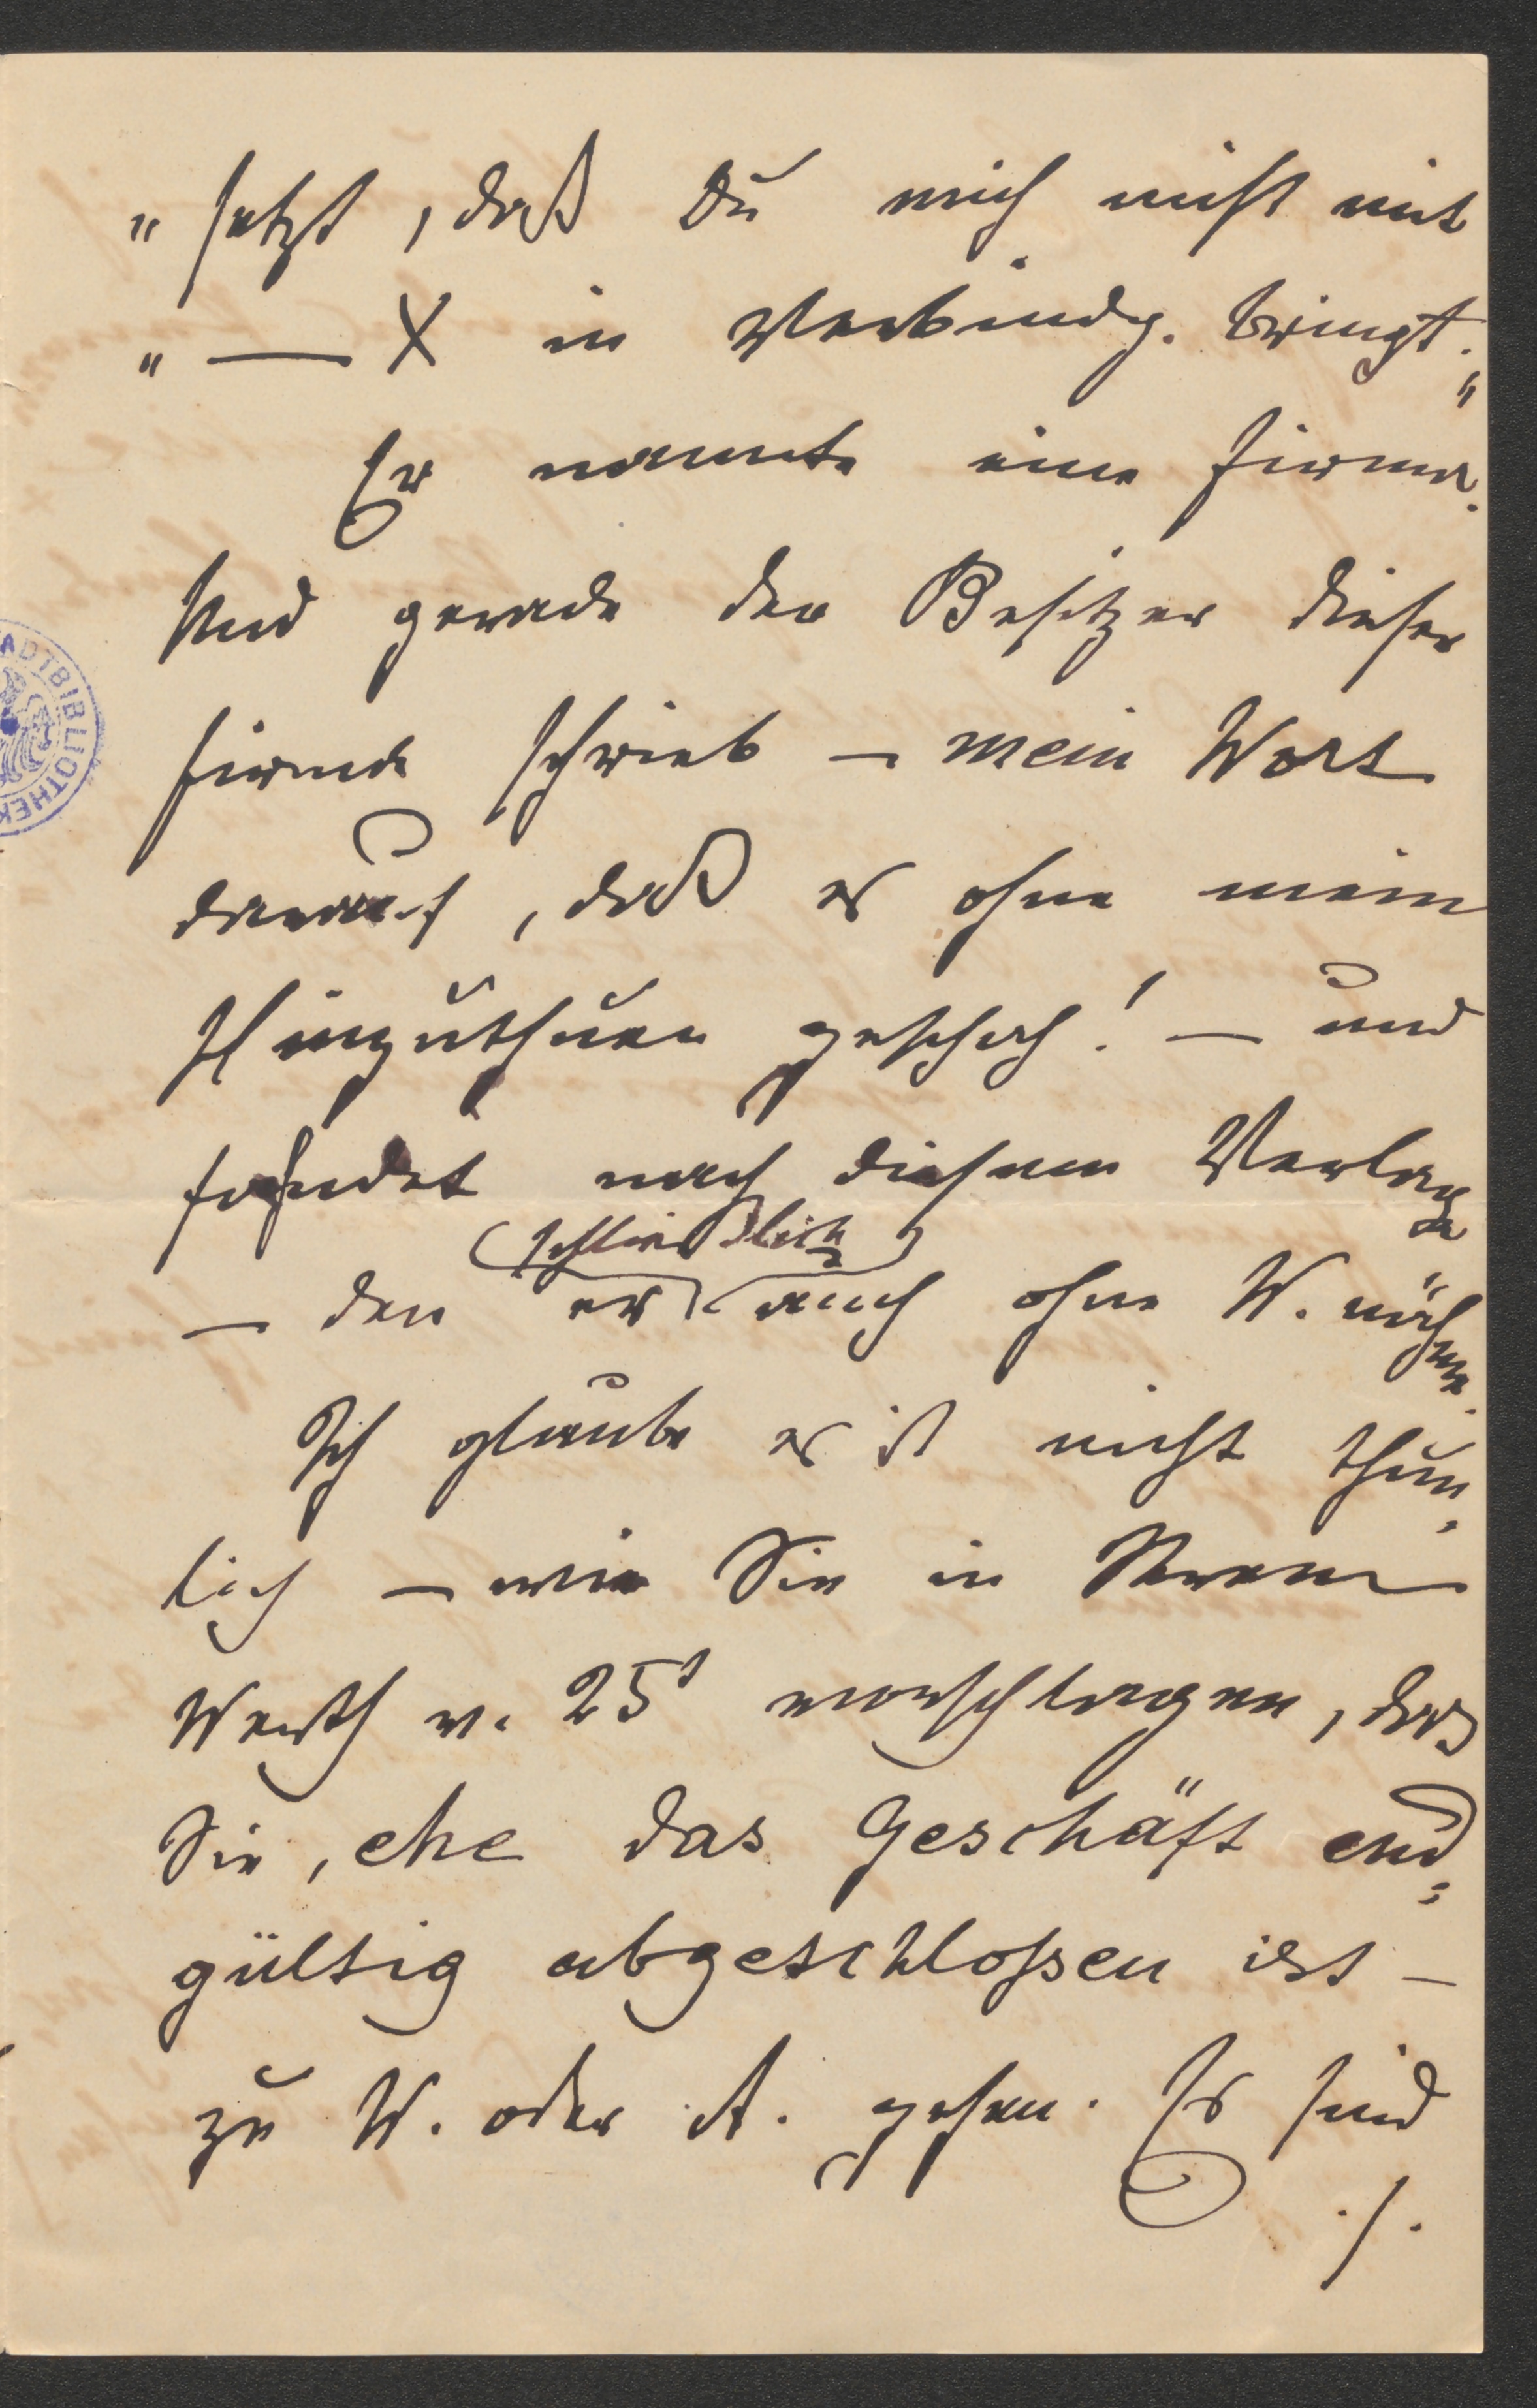 " setzt, daß Du mich nicht mit
" — X in Verbindg. bringst."
Er nannte eine Firma.
Und gerade der Besitzer dieser
Firma schrieb – mein Wort
darauf, daß es ohne mein
Hinzuthuen geschah! – und
fahndet nach diesem Verlage
(schließlich)
– den er auch ohne W. nähme.
Ich glaube es ist nicht thun-
lich – wie Sie in Ihrem
Werth v. 25t vorschlagen, das
Sie, ehe das Geschäft end-
gültig abgeschlossen ist –
zu W. oder A. gehen. Es sind
./.
ADTBIBLIOTHEK